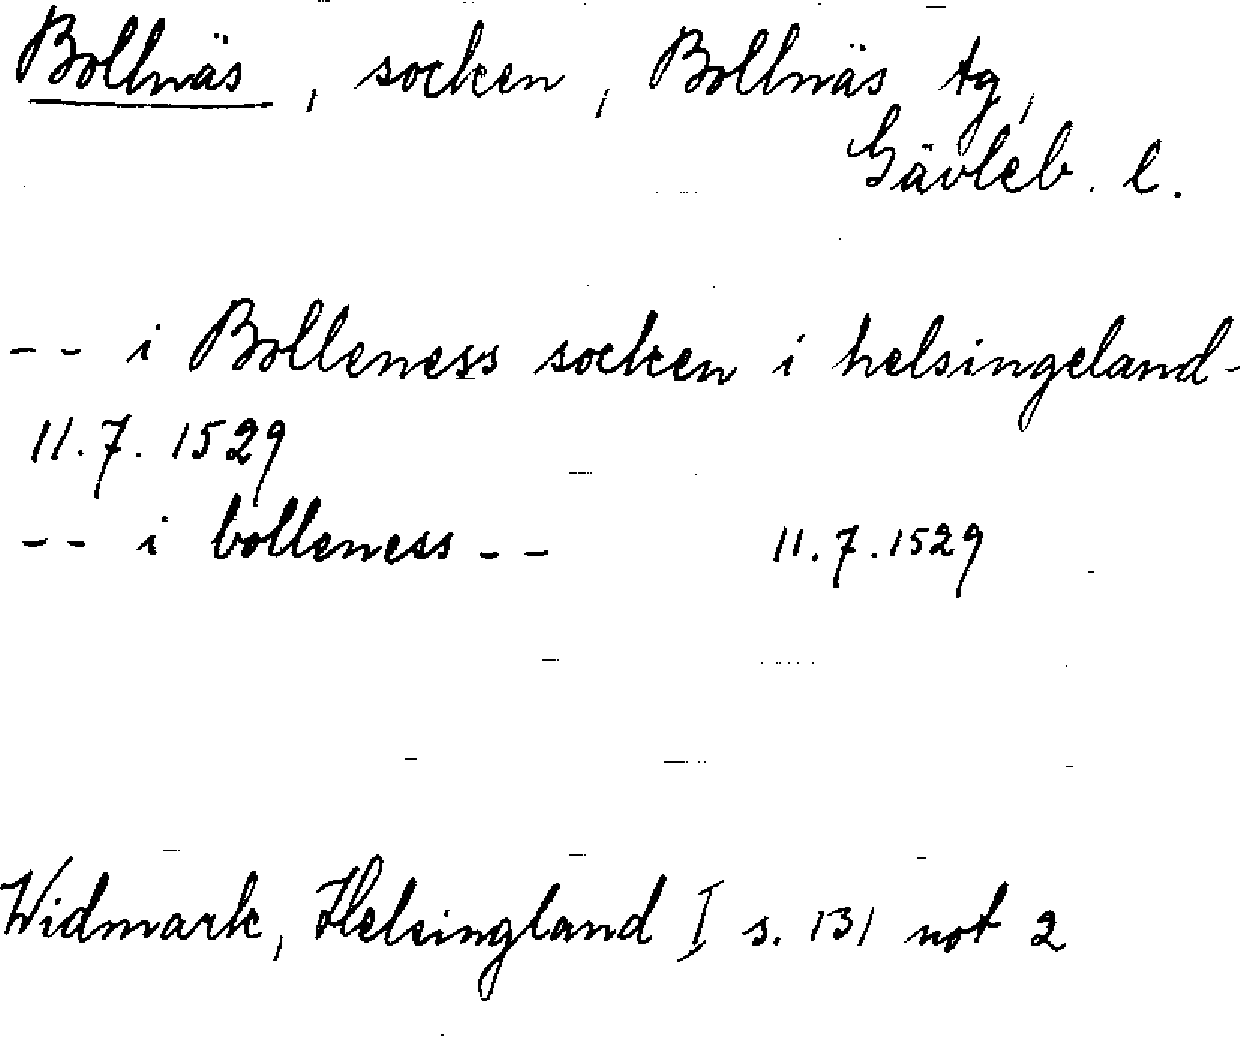 Bollnäs, socken, Bollnäs tg,
Gävleb. l.
-- i Bolleness socken i helsingeland-
11.7. 1529
-- i bolleness -- 11.7.1529
Widmark, Helsingland I s. 131 not 2